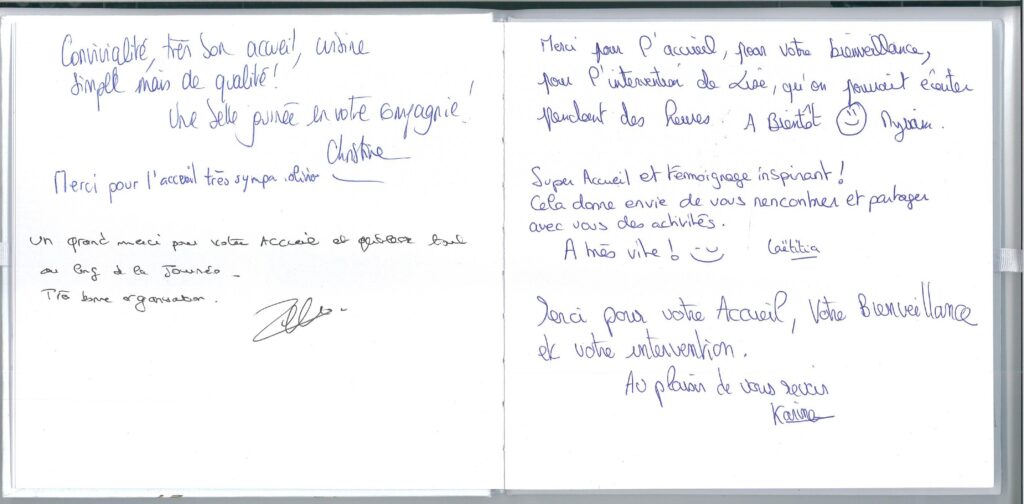 Convivialité, très bon accueil, cuisine
simple mais de qualité !
Une belle journée en votre compagnie !
Christine
Merci pour l'acceuil très sympa.
Un grand merci pour votre Accueil et tout
au long de la Journée.
Très bonne organisation.
Merci pour l'accueil, pour votre bienveillance,
pour l'intervention de Lise, qu'on pouvait écouter
pendant des heures. A Bientôt
Super Accueil et témoignage inspirant !
Cela donne envie de vous rencontrer et partager
avec vous des activités.
A très vite ! Laëtitia
Merci pour votre Accueil, Votre Bienveillance
et votre intervention.
Au plaisir de vous revoir
Karine